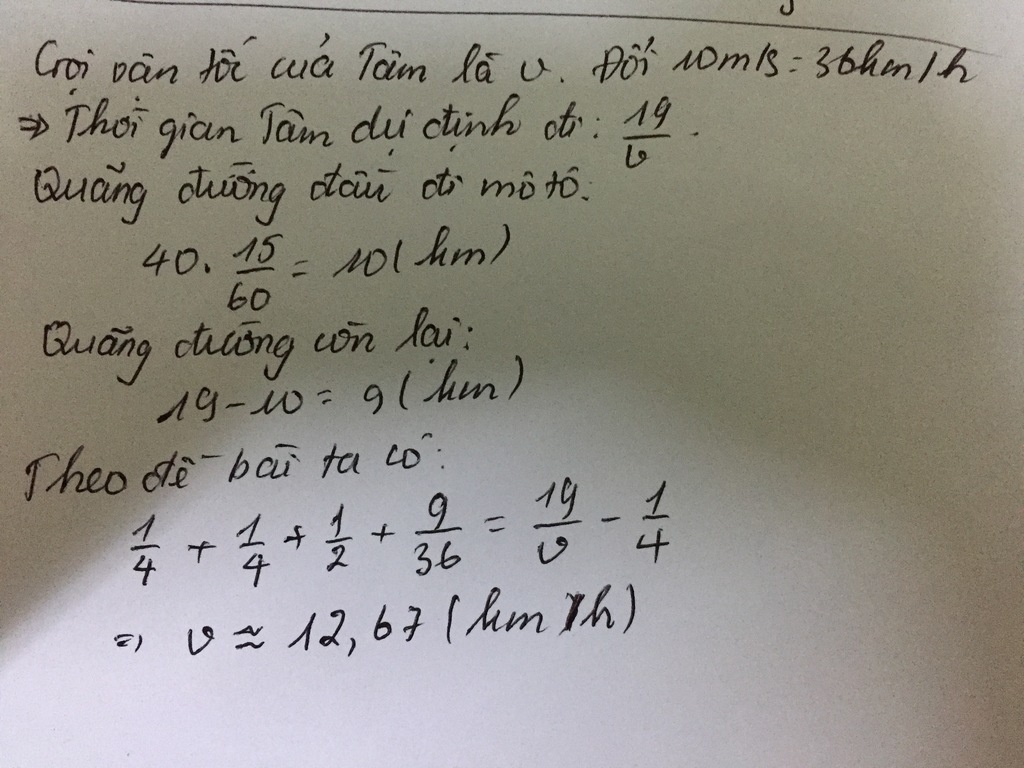 Gọi vận tốc của Tâm là v. Đổi 10m/s = 36km/h
⇒ Thời gian Tâm dự định đi: 19/v.
Quãng đường đầu đi mô tô:
40. 15/60 = 10 (km)
Quãng đường còn lại:
19-10 = 9 (km)
Theo đề bài ta có:
1/4 + 1/4 + 1/2 + 9/36 = 19/v - 1/4
=> v ≈ 12,67 (km/h)